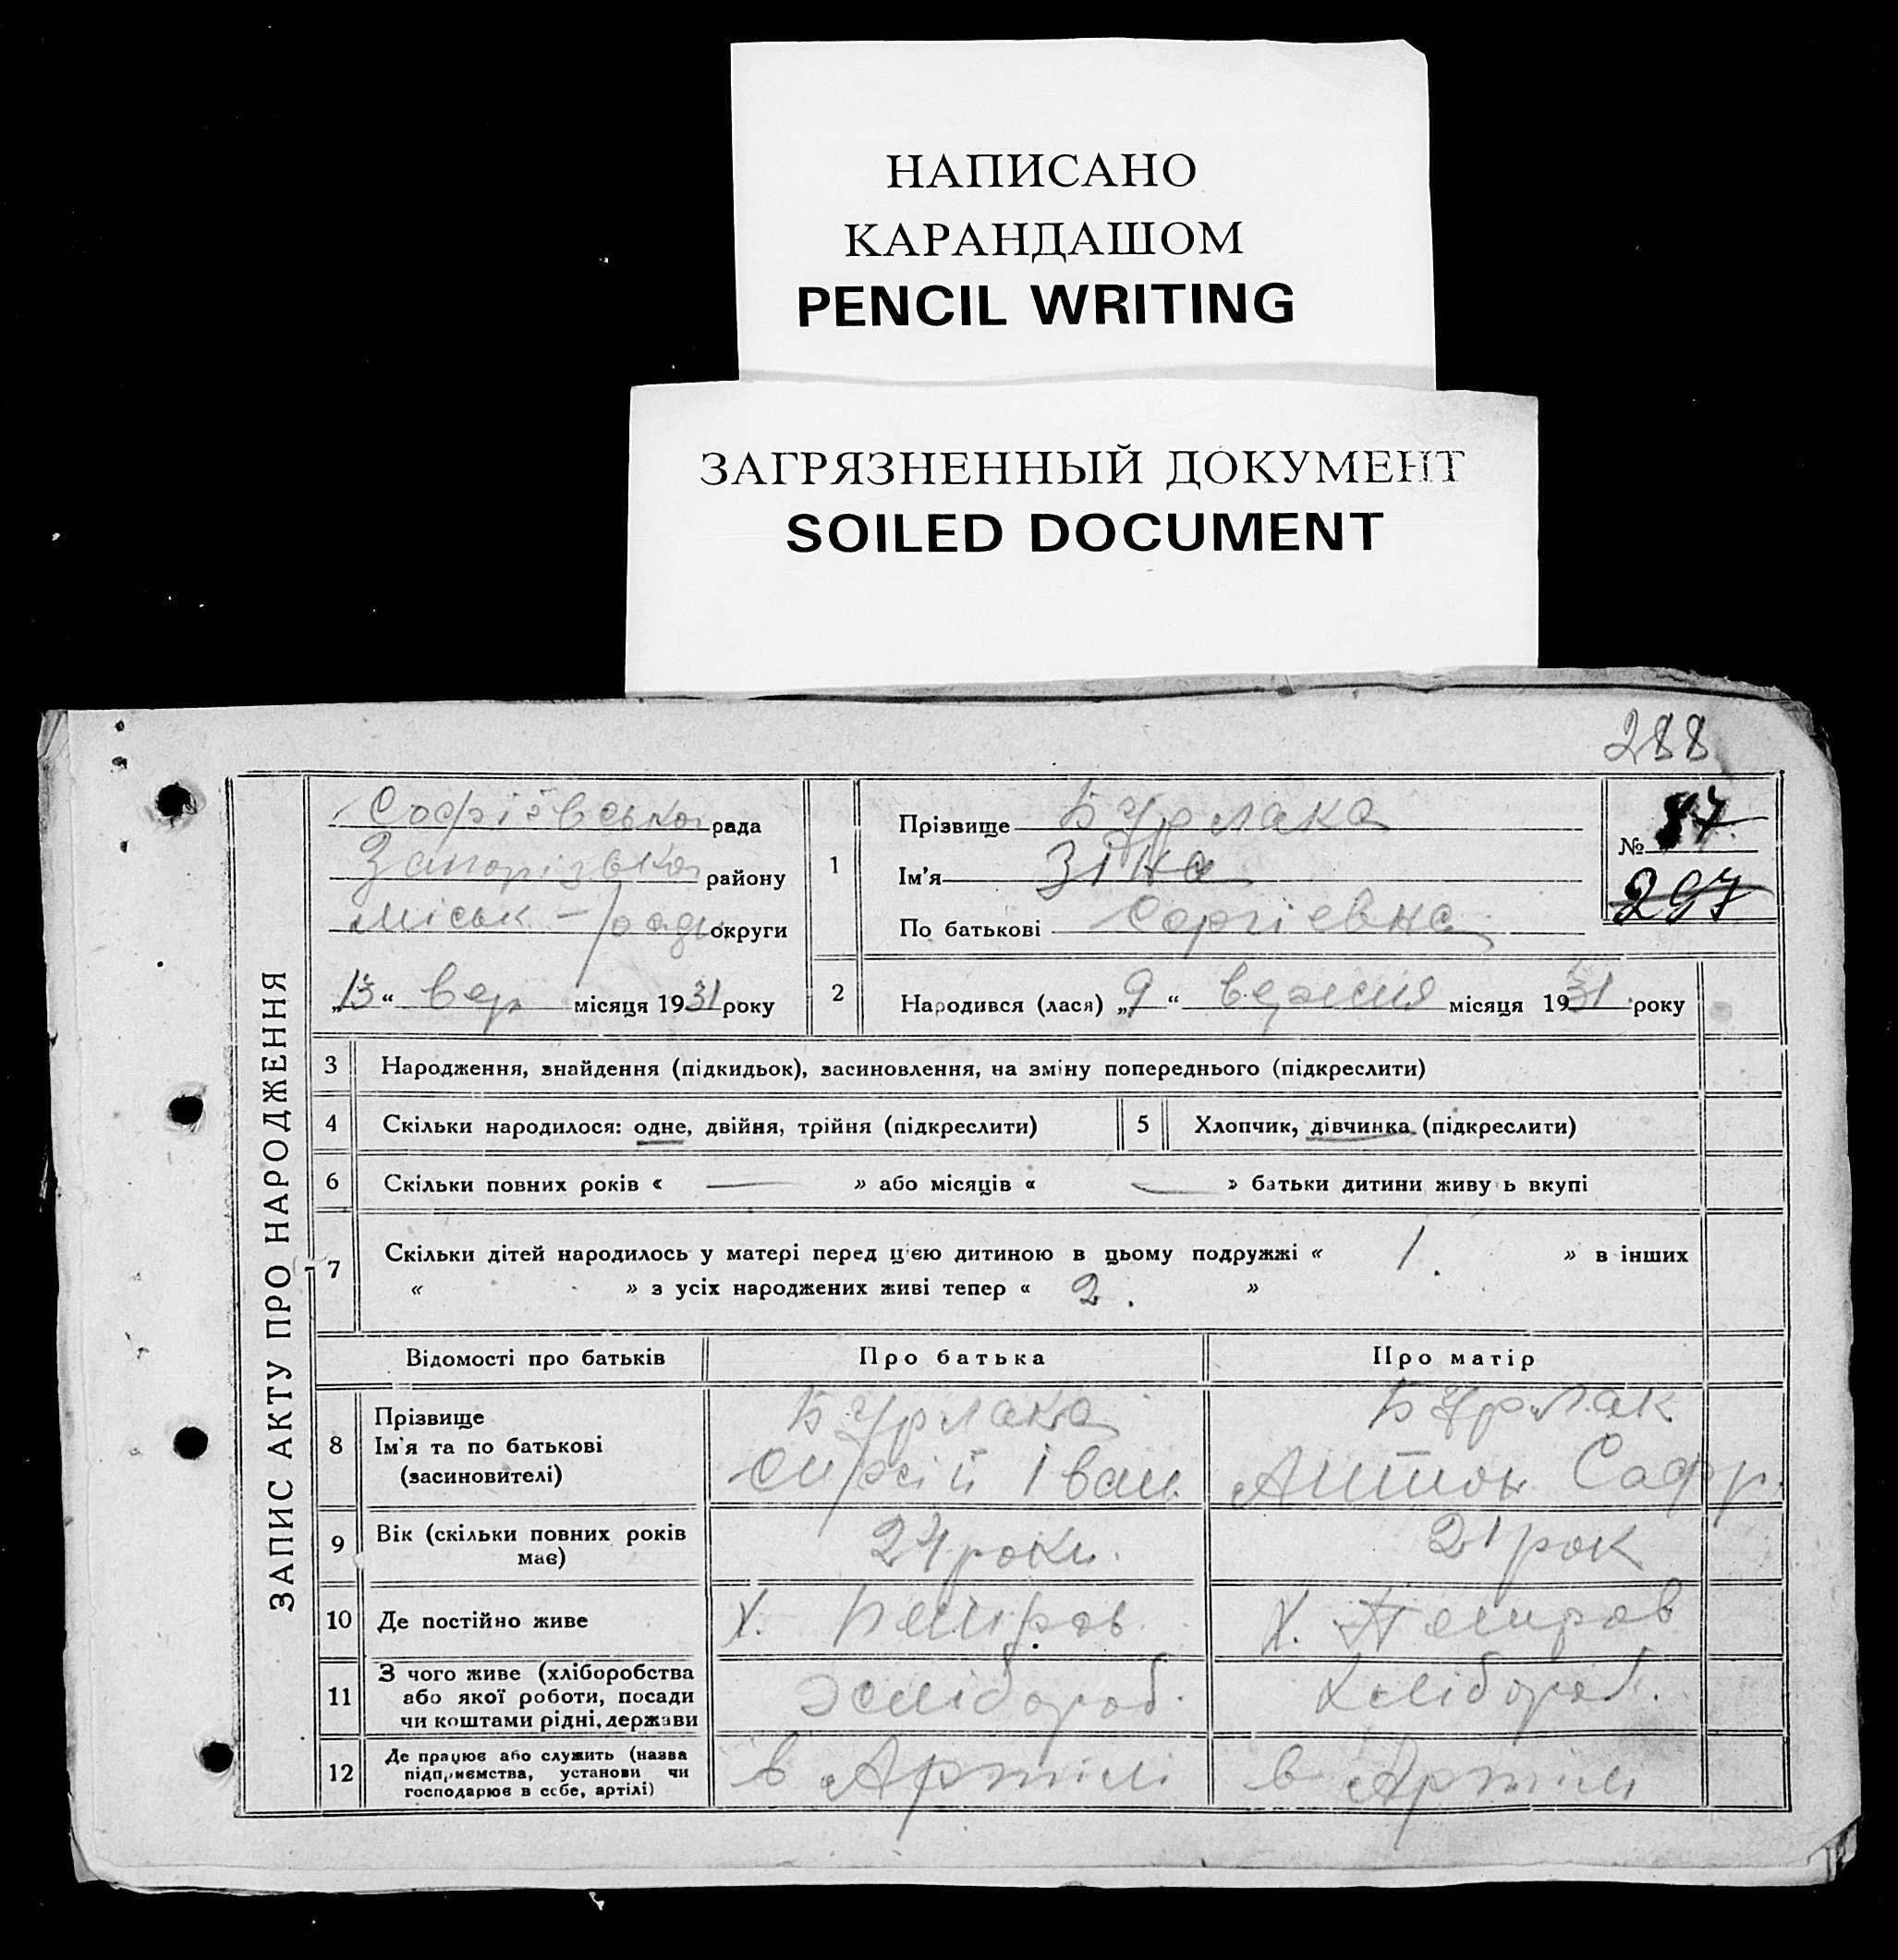 НАПИСАНО
КАРАНДАШОМ
PENCIL WRITING
ЗАГРЯЗНЕННЫЙ ДОКУМЕНТ
SOILED DOCUMENT
288
ЗАПИС АКТУ ПРО НАРОДЖЕННЯ
Софіївської рада
Запорізької району
міськ-ради округи
„13“ вер місяця 1931 року
1
Прізвище Бурлака
Ім'я Зіна
По батькові Сергіевна
№ 87
297
2
Народився (лася) „9“ вересня місяця 1931 року
3 Народження, знайдення (підкидьок), засиновлення, на зміну попереднього (підкреслити)
4 Скільки народилося: одне, двійня, трійня (підкреслити)
5 Хлопчик, дівчинка (підкреслити)
6 Скільки повних років « — » або місяців « — » батьки дитини живуь вкупі
7 Скільки дітей народилось у матері перед цією дитиною в цьому подружжі « 1. » в інших
« » з усіх народжених живі тепер « 2. »
Відомості про батьків Про батька Про матір
8 Прізвище
Ім'я та по батькові
(засиновителі)
Бурлака
Іван.
Бурлак
Софр.
9 Вік (скільки повних років
має)
24 роки.
21 рок
10 Де постійно живе
Х. Петров
Х. Петров
11 З чого живе (хліборобства
або якої роботи, посади
чи коштами рідні, держави
хлібороб.
хлібороб.
12 Де працює або служить (назва
підприємства, установи чи
господарює в себе, артілі)
в Артілі
в Артілі